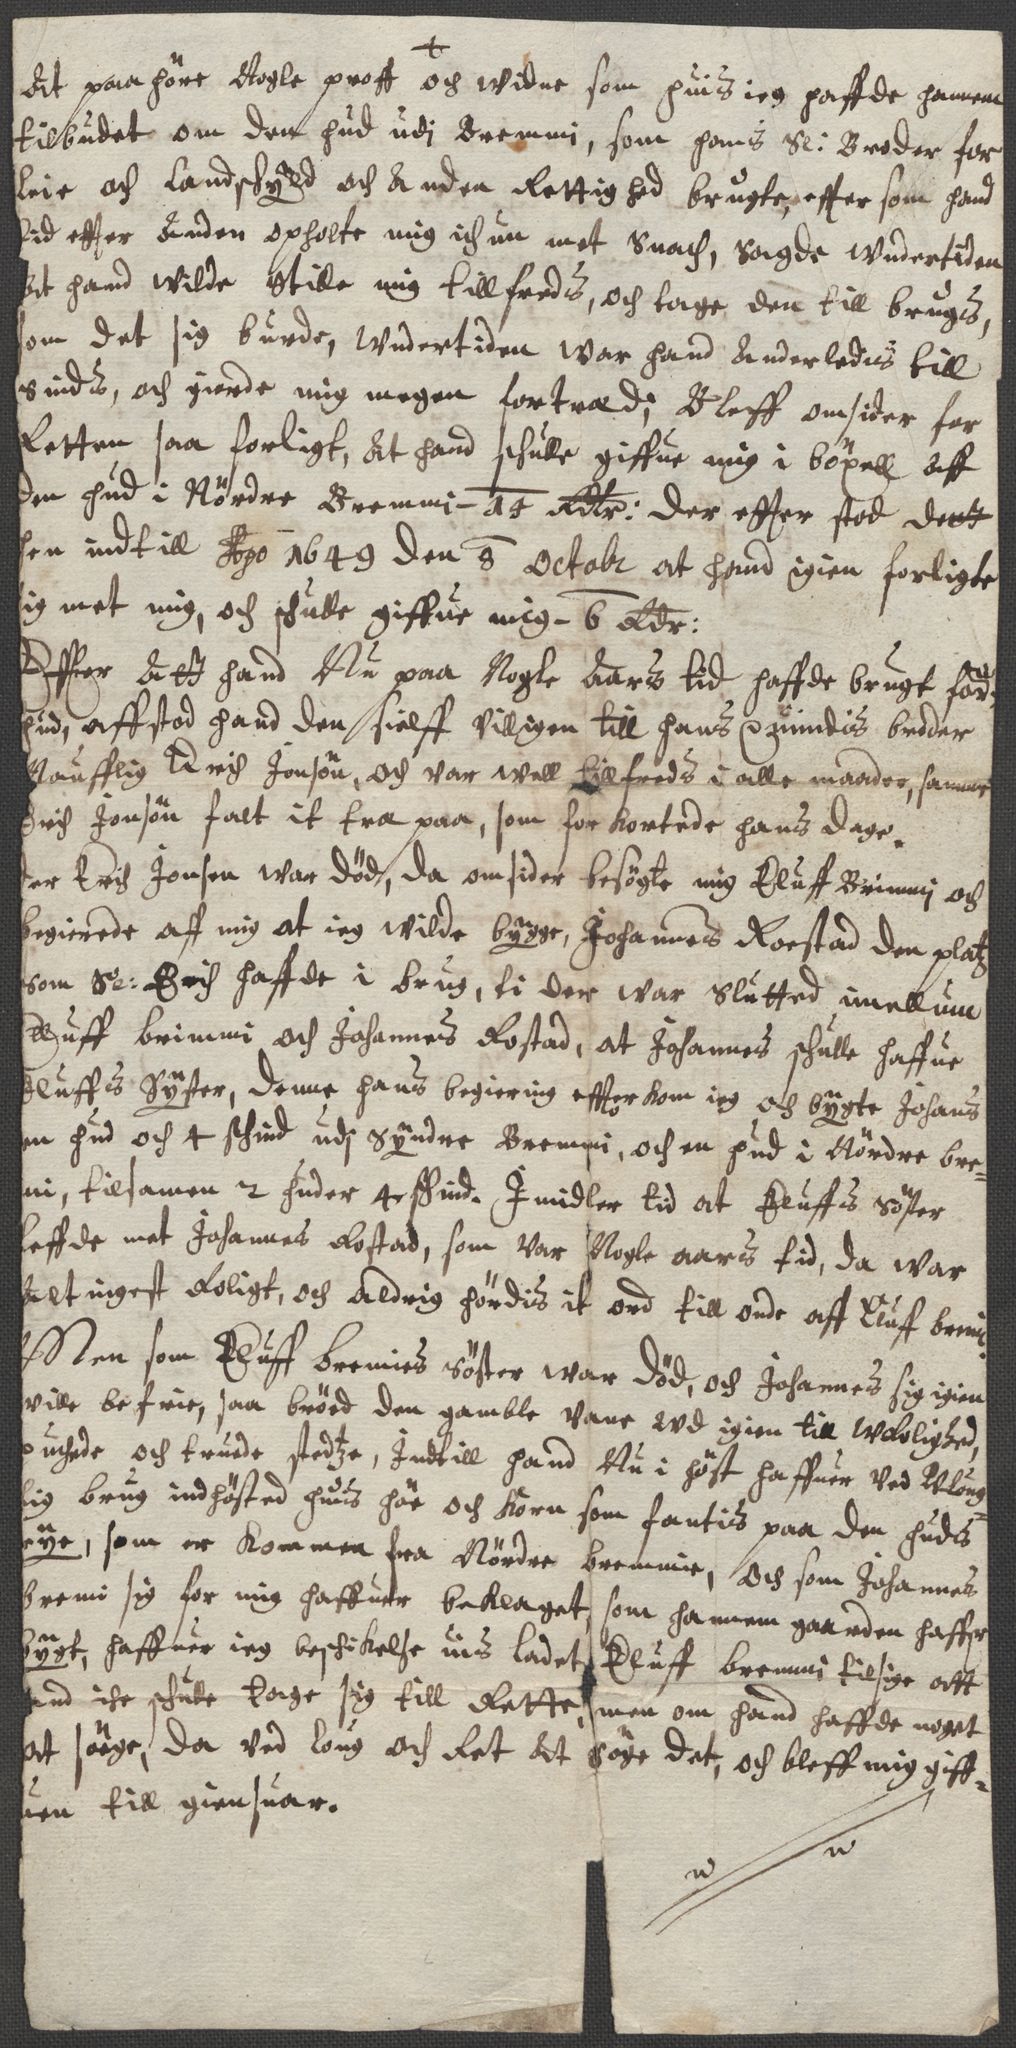 At paa höre Nogle proff och widne som huis ieg haffde hannem
tilbudet om den hud udj Bremmi, som hans Sl: Broder for
leie och Landschyld och Anden Rettighed brugte, effter som hand
tid effter Anden opholte mig ichun met Snach, Sagde Wndertiden
At hand wilde Stille mig tillfreds, och tage den till brugs,
som det sig burde, Wndertiden war hand Anderledis till
Sinds, och giorde mig megen fortred; Bleff omsider for
Retten saa forligt, At hand schulle giffue mig i böxell aff
den hud i Nördre Bremmi - Rdr: der effter stod dett
hen indtill Ao 1649 den 8 Octobr at hand igien forligte
sig met mig, och schulle giffue mig - 6 Rdr:
Effter Att hand Nu paa Nogle Aars tid haffde brugt
hud, affstod hand den sielff villigen till hans quindis broder
Naufflig Erich Jonsön, och var well tillfreds i alle maader, samme
Erich Jonsön falt it træ paa, som forkortede hans dage.
der Erich Jonsen war död, da omsider besögte mig Eluff Brimmj och
begierede aff mig at ieg wilde bygge, Johannes Roestad den platz
som Sl: Erich haffde i brug, ti der war Slutted imellum
Eluff brimmi och Johannes Rostad, at Johannes schulle haffue
Eluffs Syster, denne hans begiering effterkom ieg och bygte Johans
en hud och 4 schind udj Syndre Bremmi, och en hud i Nördre bre-
mi, tilsamen 2 huder 4 schind. Imidler tid at Eluffs Söster
leffde met Johannes Rostad, som var Nogle aars tid, da war
Altingest Roligt, och aldrig hördis it ord till onde aff Eluff bremi.
Men som Eluff bremies Söster war död, och Johannes sig igien
ville befrie, saa bröed den gamble vane wd igien till Wrolighed,
puchede och truede stedtze, Indtill hand Nu i höst haffuer ved Vloug-
lig brug indhösted huis höe och Korn som fantis paa den huds
eye, som er Kommen fra Nördre bremmie, Och som Johannes
bremi sig for mig haffuer beklaget, som hannem gaarden haffr
bygt, haffuer ieg beschikelse uis ladet Eluff bremmi tilsige att
hand iche schulle tage sig till Rette, men om hand haffde noget
at söege, da ved loug och Ret At söge det, och bleff mig giff-
uen till giensuar.